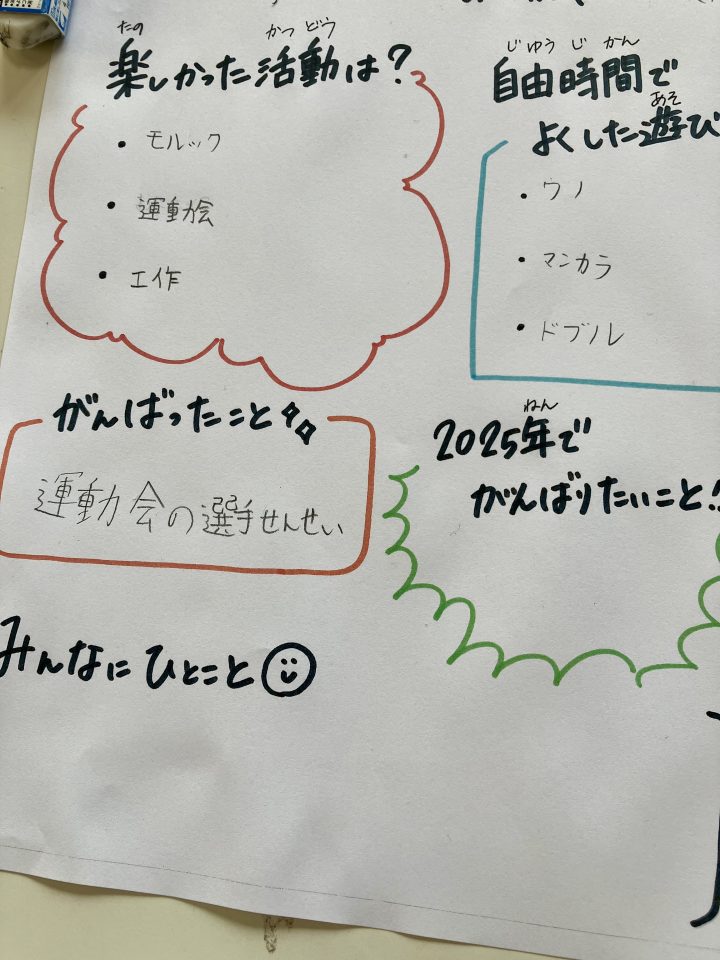 たの かつ どう
楽しかった活動は?
・モルック
・運動会
・工作
じゆう じ かん
自由時間で
あそ
よくした遊び
・ウノ
・マンカラ
・ドブル
がんばったこと
運動会の選手せんせい
ねん
2025年で
がんばりたいこと!
みんなにひとこと